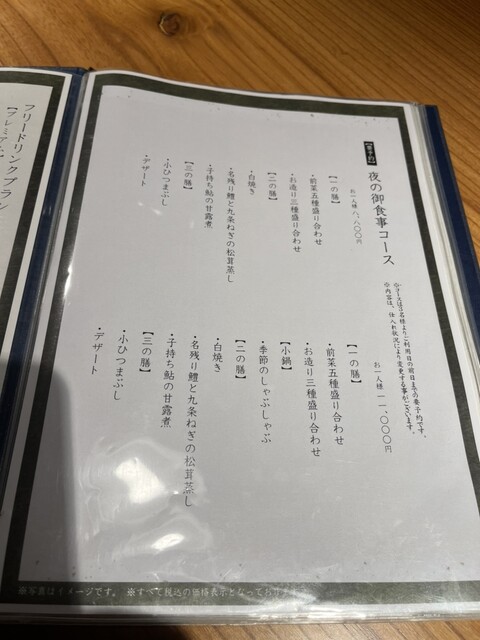 【要予約】
夜の御食事コース
※コースは2名様よりご利用日の前日までの要予約です。
※内容は、仕入れ状況により変更する事がございます。
お一人様 八、八〇〇円
【一の膳】
・前菜五種盛り合わせ
・お造り三種盛り合わせ
【二の膳】
・白焼き
・名残り鱧と九条ねぎの松茸蒸し
・子持ち鮎の甘露煮
【三の膳】
・小ひつまぶし
・デザート
お一人様 一一、〇〇〇円
【一の膳】
・前菜五種盛り合わせ
・お造り三種盛り合わせ
【小鍋】
・季節のしゃぶしゃぶ
【二の膳】
・白焼き
・名残り鱧と九条ねぎの松茸蒸し
・子持ち鮎の甘露煮
【三の膳】
・小ひつまぶし
・デザート
フリードリンクプラン
【プレミアム
※写真はイメージです。 ※すべて税込の価格表示となっており